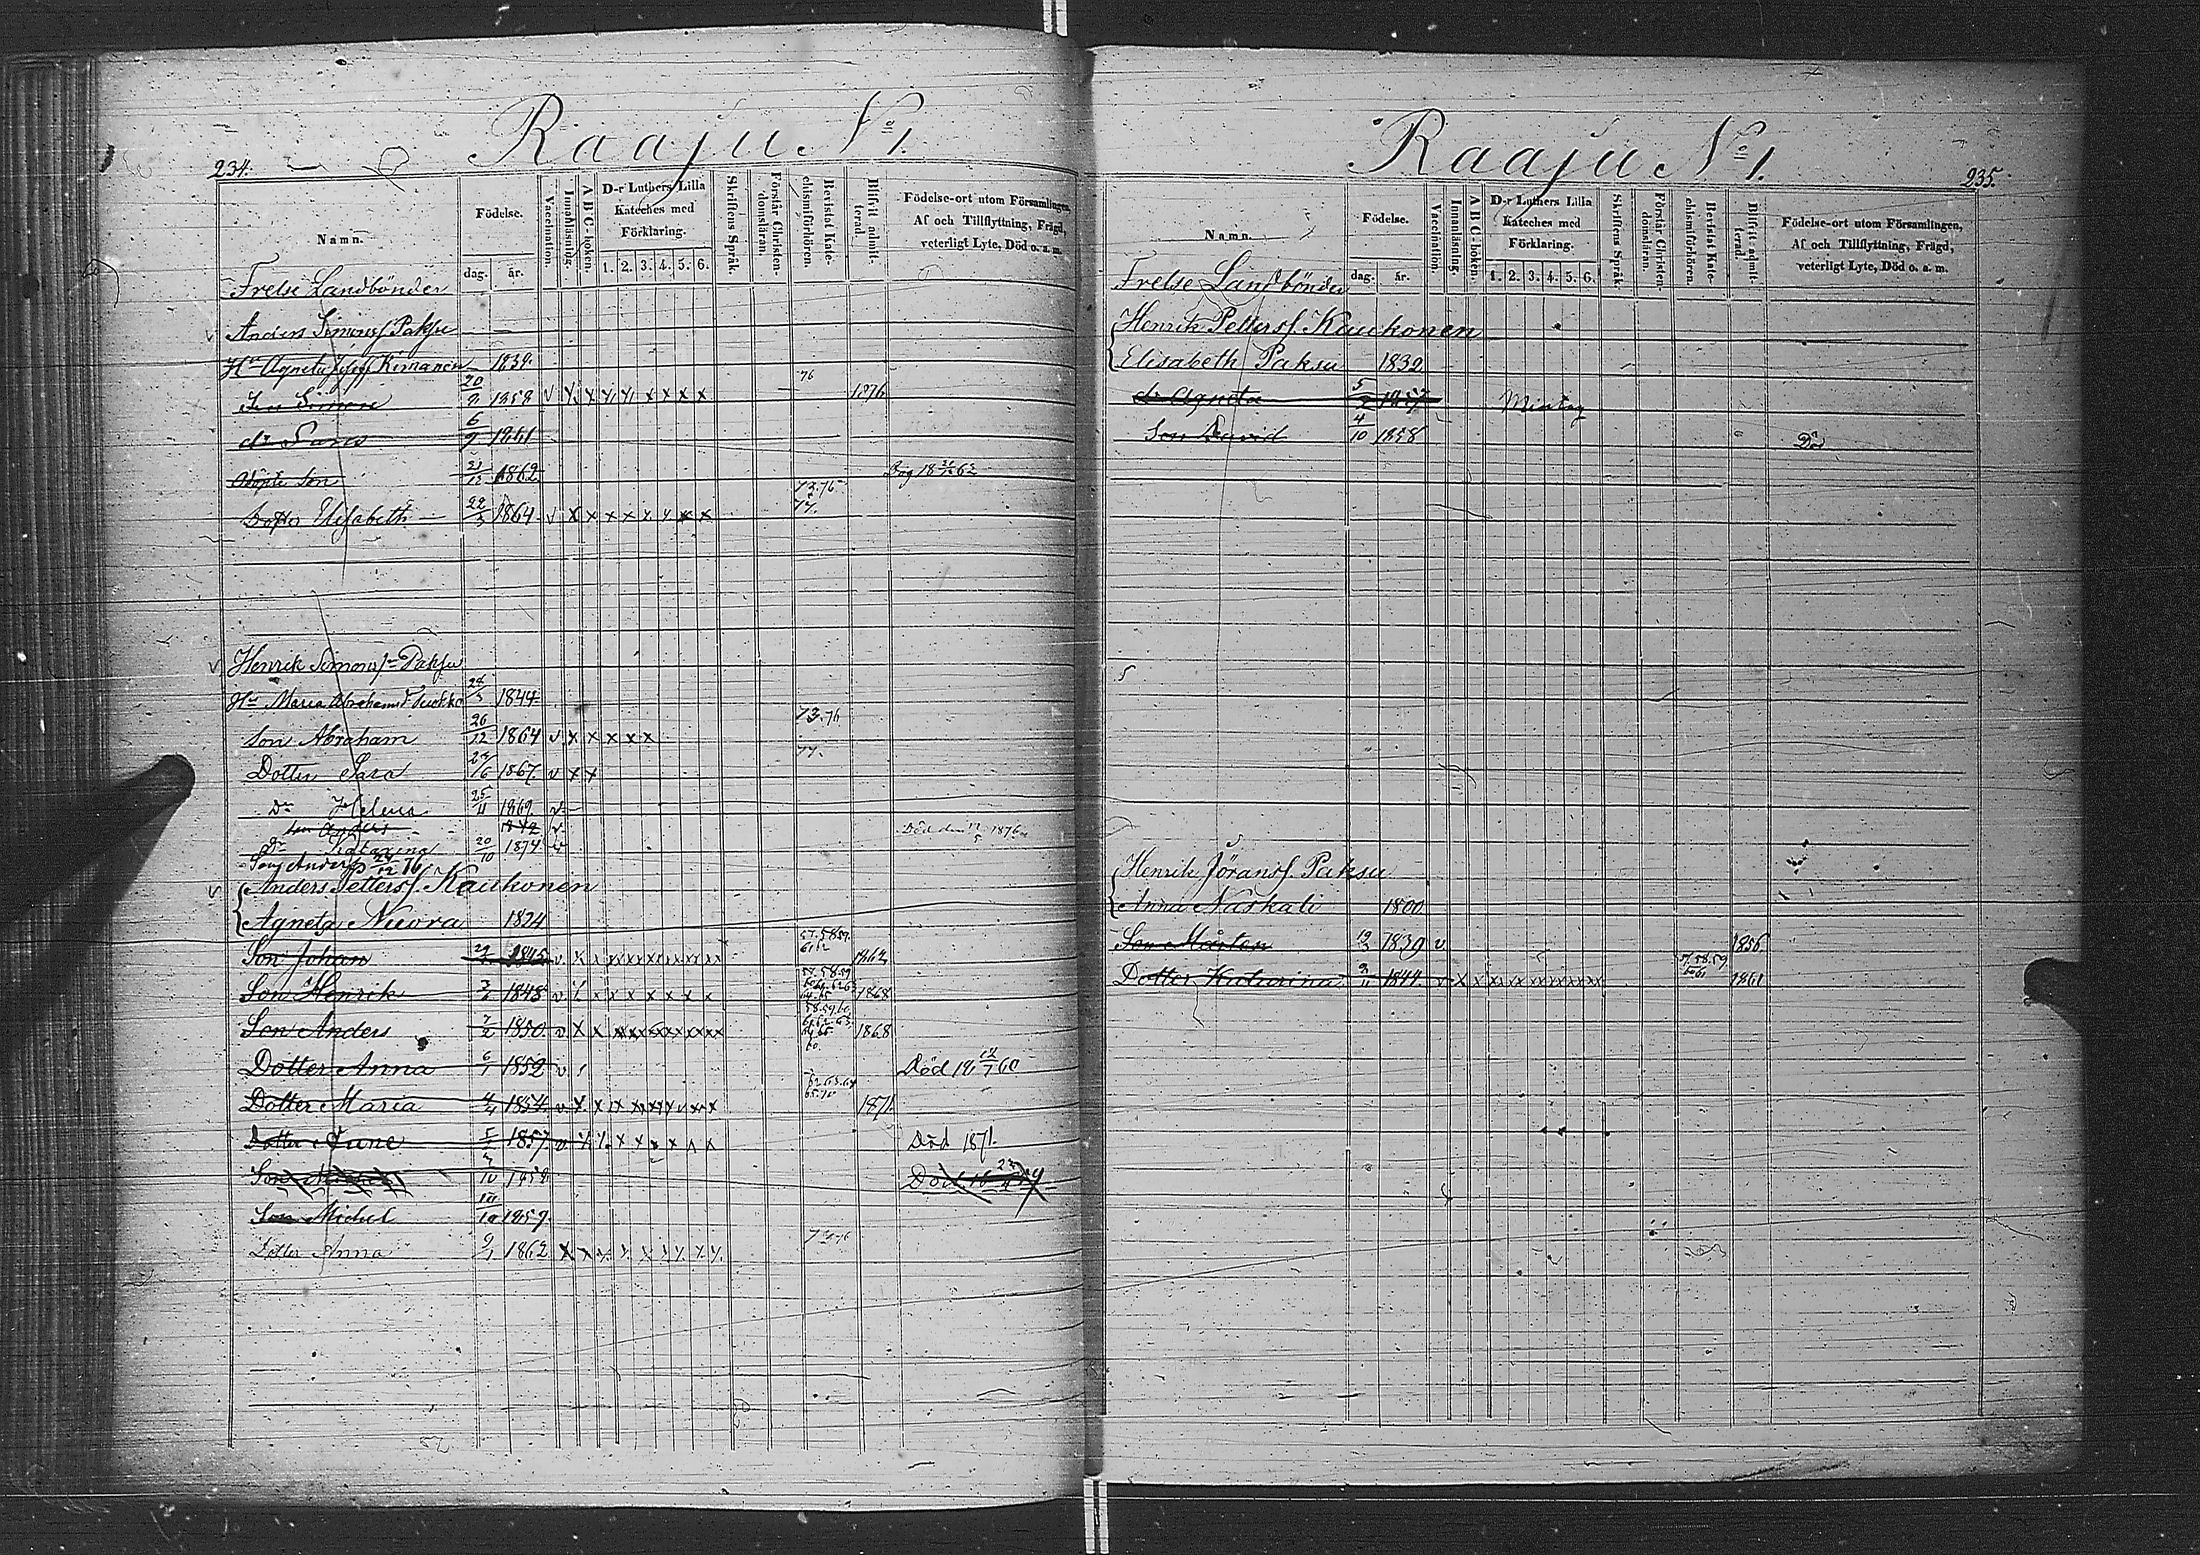 234.
Raaju No 1.
Namn.
Födelse.
dag. år.
Vaccination.
Innanläsning.
A B C-boken.
D-r Luthers Lilla
Kateches med
Förklaring.
1. 2. 3. 4. 5. 6.
Skriftens Språk.
Förstår Christen-
domsläran.
Bevistat Kate-
chismiförhören.
Blifvit admit-
terad.
Födelse-ort utom Församlingen,
Af och Tillflyttning, Frägd,
veterligt Lyte, Död o. a. m.
Frelse Landbönder
Anders Simonsf Paksu
Hu Agneta Kimanen 1839
Son Simon 20/2 1858 v x x x x x x x x 76 1876
do Lars 6/9 1861
Döpte Son 21/12 1862 Dog 18 62
Dotter Elisabeth 22/3 1864 v x x x x x x x x 73.76 77.
Henrik Simonsf Paksu
Hu Maria Abrahamsd 28/3 1844
Son Abraham 26/12 1864 v x x x x x 73.76
Dotter Sara 24/6 1867 v x x 77.
Dr Helena 25/11 1869 v
Son Anders 1872 v Död den 1876
Dr Katarina 20/10 1874 v
Son Anders 24/12 76
Anders Pettersf. Kaukonen
Agneta Nuora 1824
Son Johan 1845 v x x x x x x x x 57.58.59. 61.62 1862
Son Henrik 3/2 1848 v x x x x x x x 57.58.59 1868
Son Anders 7/2 1850 v x x x x x x x x 58.59.60. 1868
Dotter Anna 6/1 1852 v Död 60
Dotter Maria 4/4 1854 v x x x x x x x x 62.63.64 1871
Dotter 1857 v x x x x x x Död 1871.
Son 7/10 1858 Död
Son Michel 10/10 1859
Dotter Anna 9/1 1862 x x x x x x x x
Raaju No 1.
235.
Namn.
Födelse.
dag. år.
Vaccination.
Innanläsning.
A B C-boken.
D-r Luthers Lilla
Kateches med
Förklaring.
1. 2. 3. 4. 5. 6.
Skriftens Språk.
Förstår Christen-
domsläran.
Bevistat Kate-
chismiförhören.
Blifvit admit-
terad.
Födelse-ort utom Församlingen,
Af och Tillflyttning, Frägd,
veterligt Lyte, Död o. a. m.
Frelse Landbönder
Henrik Pettersf. Kaukonen
Elisabeth Paksu 1832
dr Agneta 5/2 1857
Son David 4/10 1858 Död
Henrik Jöransf. Paksu
Anna Naskali 1800
Son Mårten 19/3 1839 v 1856
Dotter Katarina 2/11 1844 v x x x x x x x x 57.58.59 60 61 1861